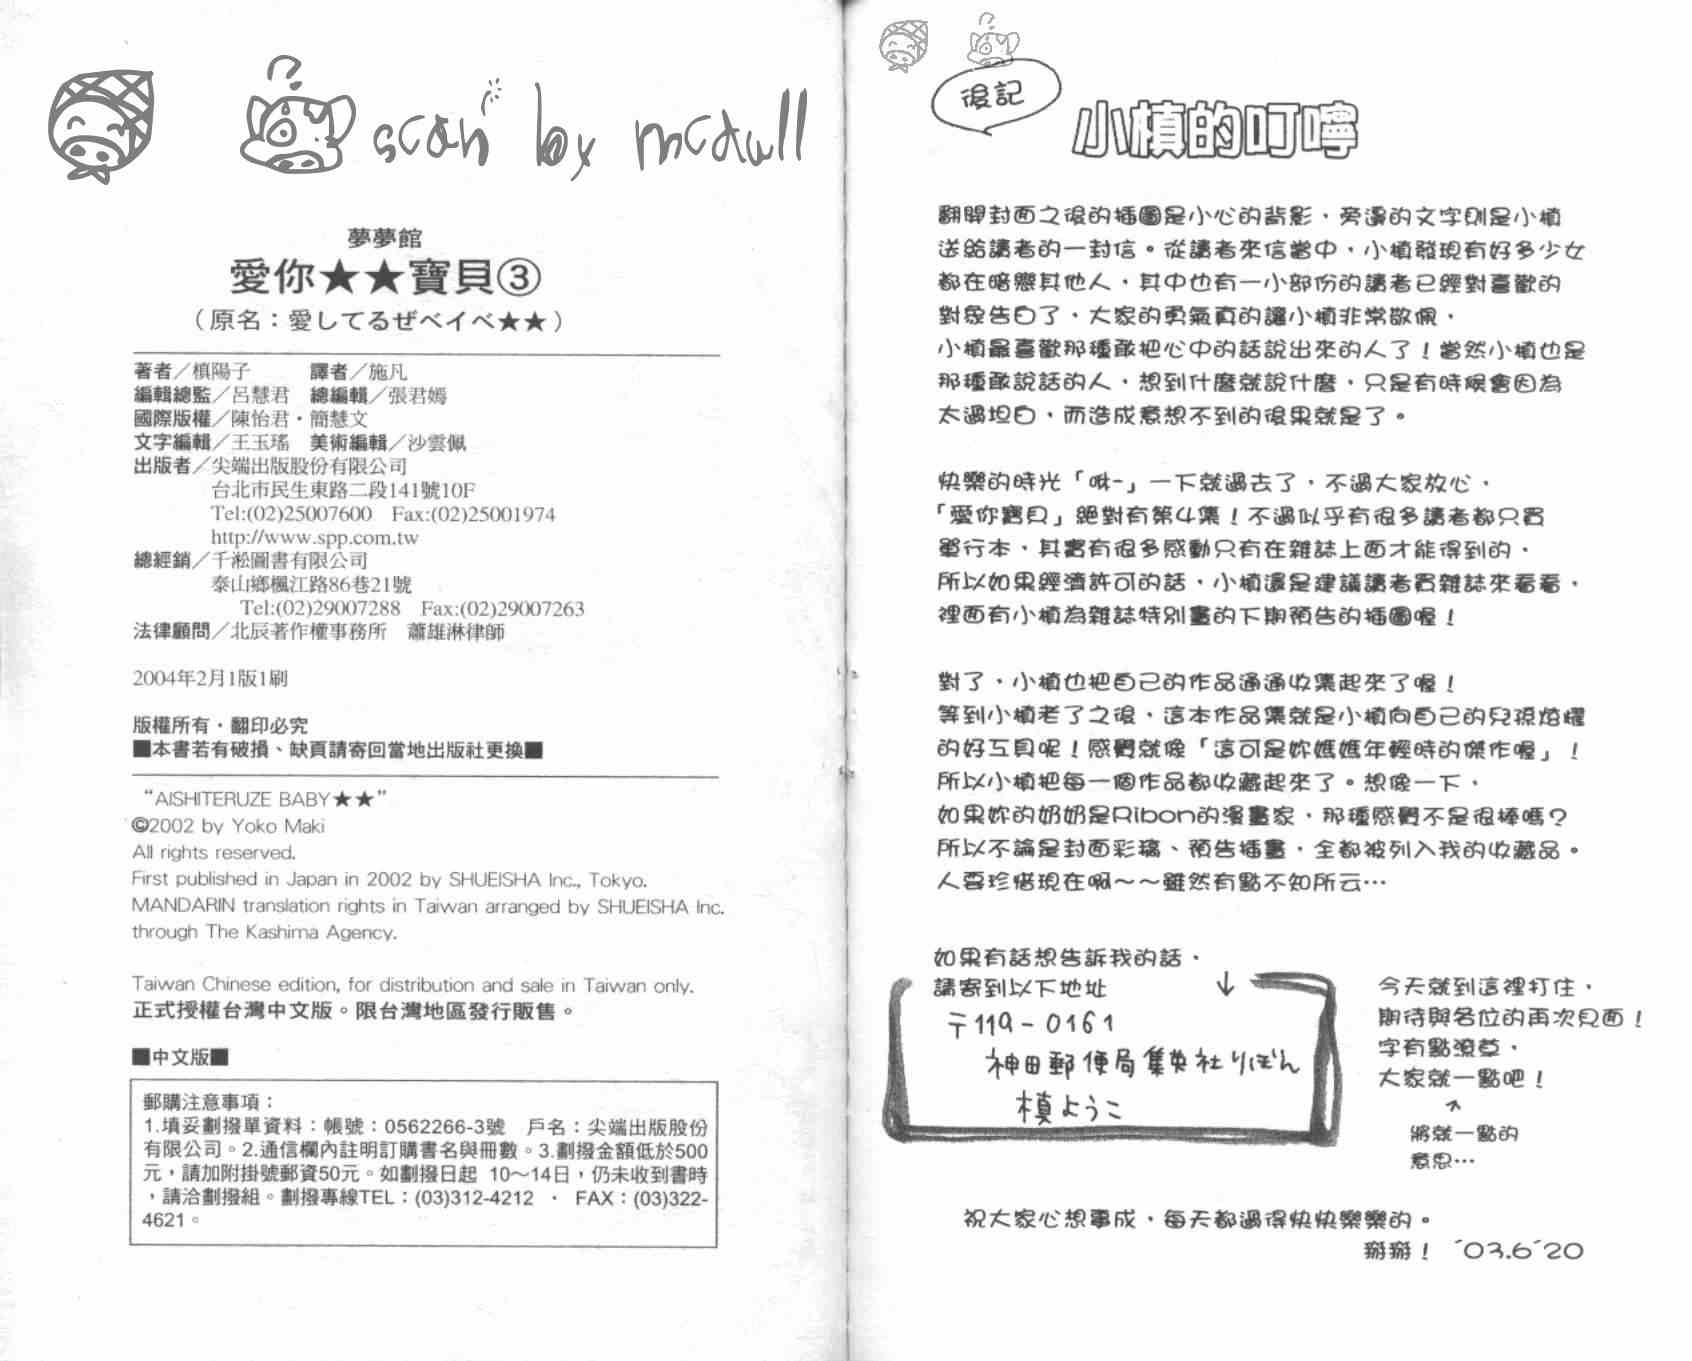 scan by mcdull
夢夢館
愛你★★寶貝③
（原名：愛してるぜベイベ★★）
著者／槙陽子　譯者／施凡
編輯總監／呂慧君　總編輯／張君嫣
國際版權／陳怡君・簡慧文
文字編輯／王玉瑤　美術編輯／沙雲佩
出版者／尖端出版股份有限公司
台北市民生東路二段141號10F
Tel:(02)25007600　Fax:(02)25001974
http://www.spp.com.tw
總經銷／千淞圖書有限公司
泰山鄉楓江路86巷21號
Tel:(02)29007288　Fax:(02)29007263
法律顧問／北辰著作權事務所　蕭雄淋律師
2004年2月1版1刷
版權所有・翻印必究
■本書若有破損、缺頁請寄回當地出版社更換■
“AISHITERUZE BABY★★”
©2002 by Yoko Maki
All rights reserved.
First published in Japan in 2002 by SHUEISHA Inc., Tokyo.
MANDARIN translation rights in Taiwan arranged by SHUEISHA Inc.
through The Kashima Agency.
Taiwan Chinese edition, for distribution and sale in Taiwan only.
正式授權台灣中文版。限台灣地區發行販售。
■中文版■
郵購注意事項：
1.填妥劃撥單資料：帳號：0562266-3號　戶名：尖端出版股份
有限公司。2.通信欄內註明訂購書名與冊數。3.劃撥金額低於500
元，請加附掛號郵資50元。如劃撥日起 10～14日，仍未收到書時
，請洽劃撥組。劃撥專線TEL：(03)312-4212 ・ FAX：(03)322-
4621。
後記
小槙的叮嚀
翻開封面之後的插圖是小心的背影，旁邊的文字則是小槙
送給讀者的一封信。從讀者來信當中，小槙發現有好多少女
都在暗戀其他人，其中也有一小部份的讀者已經對喜歡的
對象告白了，大家的勇氣真的讓小槙非常敬佩，
小槙最喜歡那種敢把心中的話說出來的人了！當然小槙也是
那種敢說話的人，想到什麼就說什麼，只是有時候會因為
太過坦白，而造成意想不到的後果就是了。
快樂的時光「咻-」一下就過去了，不過大家放心，
「愛你寶貝」絕對有第4集！不過似乎有很多讀者都只買
單行本，其實有很多感動只有在雜誌上面才能得到的，
所以如果經濟許可的話，小槙還是建議讀者買雜誌來看看，
裡面有小槙為雜誌特別畫的下期預告的插圖喔！
對了，小槙也把自己的作品通通收集起來了喔！
等到小槙老了之後，這本作品集就是小槙向自己的兒孫炫耀
的好工具呢！感覺就像「這可是妳媽媽年輕時的傑作喔」！
所以小槙把每一個作品都收藏起來了。想像一下，
如果妳的奶奶是Ribon的漫畫家，那種感覺不是很棒嗎？
所以不論是封面彩稿、預告插畫，全都被列入我的收藏品。
人要珍惜現在啊～～雖然有點不知所云…
如果有話想告訴我的話，
請寄到以下地址　↓
〒119-0161
神田郵便局集英社りぼん
槙ようこ
今天就到這裡打住，
期待與各位的再次見面！
字有點潦草，
大家就一點吧！
^
將就一點的
意思…
祝大家心想事成，每天都過得快快樂樂的。
掰掰！ ´03.6´20